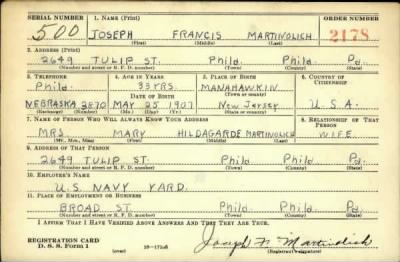 SERIAL NUMBER 1. NAME (Print) ORDER NUMBER
500 JOSEPH FRANCIS MARTINOLICH 2178
(First) (Middle) (Last)
2. ADDRESS (Print)
2649 TULIP ST. Phila Phila Pa.
(Number and street or R. F. D. number) (Town) (County) (State)
3. TELEPHONE 4. AGE IN YEARS 5. PLACE OF BIRTH 6. COUNTRY OF CITIZENSHIP
Phila. 33 YRS. MANAHAWKIN
DATE OF BIRTH
NEBRASKA 2870 MAY 25 1907 New Jersey U.S.A.
(Exchange) (Number) (Mo.) (Day) (Yr.) (State or country)
7. NAME OF PERSON WHO WILL ALWAYS KNOW YOUR ADDRESS 8. RELATIONSHIP OF THAT PERSON
MRS. MARY HILDAGARDE MARTINOLICH WIFE.
(Mr., Mrs., Miss) (First) (Middle) (Last)
9. ADDRESS OF THAT PERSON
2649 TULIP ST. Phila Phila Pa.
(Number and street or R. F. D. number) (Town) (County) (State)
10. EMPLOYER'S NAME
U.S. NAVY YARD.
11. PLACE OF EMPLOYMENT OR BUSINESS
BROAD ST. Phila Phila Pa.
(Number and street or R. F. D. number) (Town) (County) (State)
I AFFIRM THAT I HAVE VERIFIED ABOVE ANSWERS AND THAT THEY ARE TRUE.
REGISTRATION CARD
D. S. S. Form 1 (over) Joseph F. Martinolich
(Registrant's signature)